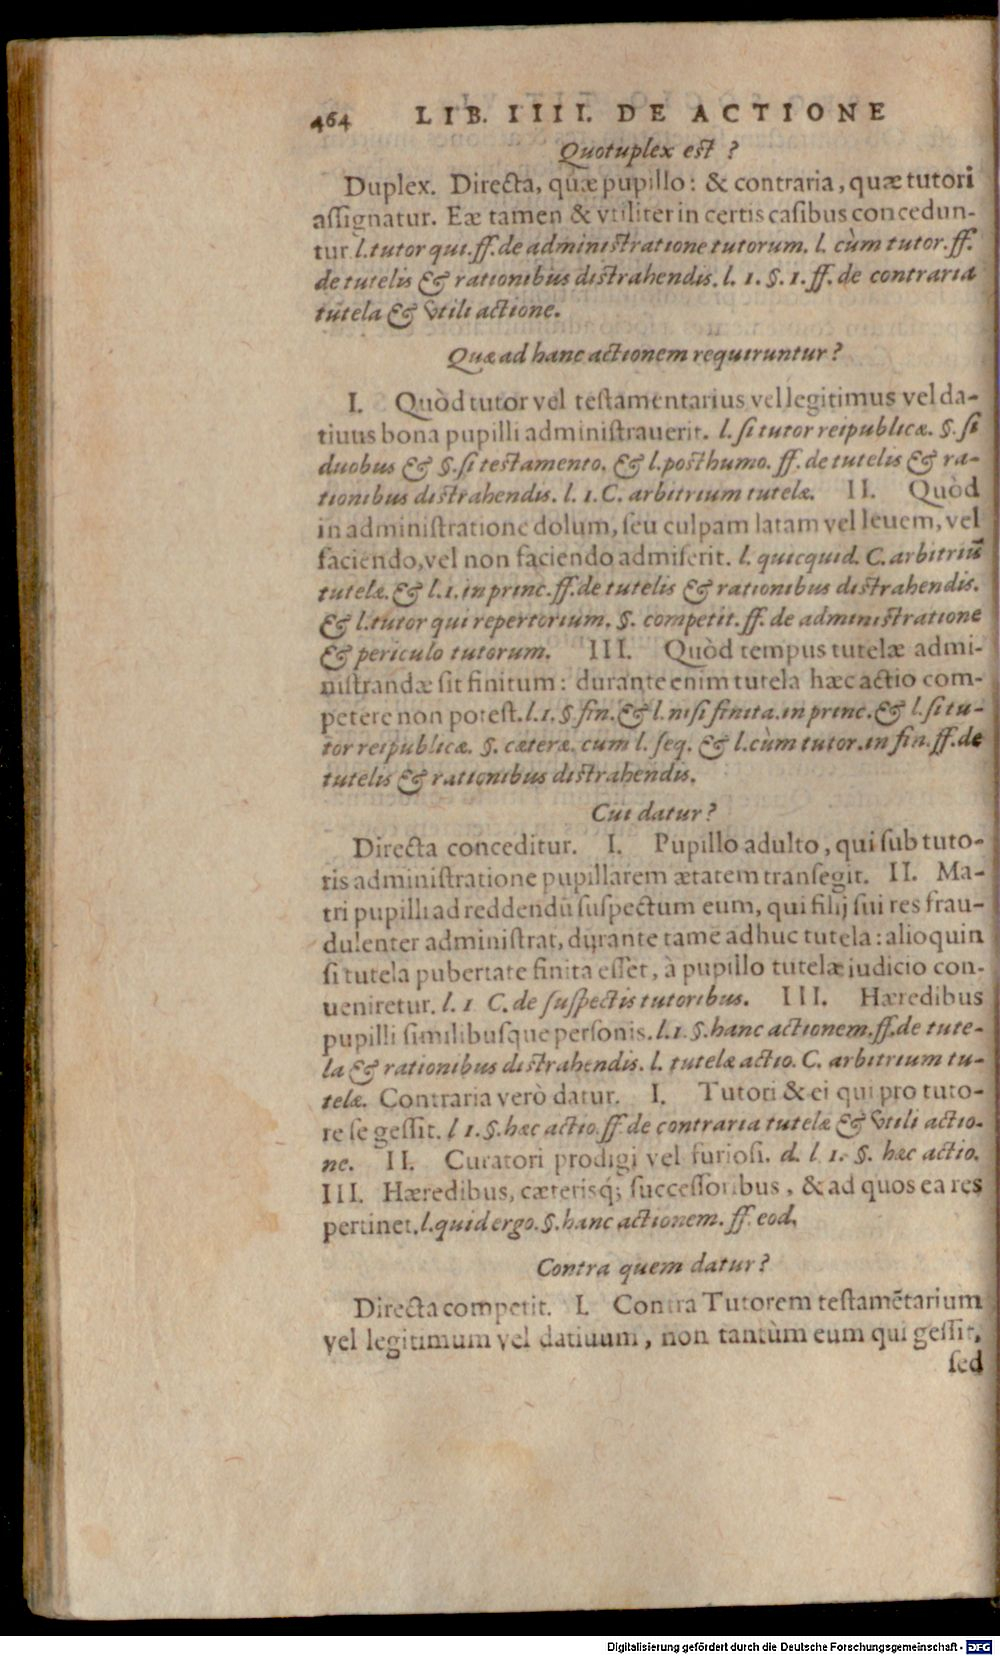 464 LIB. IIII. DE ACTIONE
Quotuplex est ?
Duplex. Directa, quæ pupillo: & contraria, quæ tutori
aſſignatur. Eæ tamen & vtiliter in certis caſibus concedun-
tur l. tutor qui. ff. de adminiſtratione tutorum. l. cùm tutor. ff.
de tutelis & rationibus diſtrahendis. l. 1. §. 1. ff. de contraria
tutela & vtili actione.
Quæ ad hanc actionem requiruntur?
I. Quòd tutor vel teſtamentarius vel legitimus vel da-
tiuus bona pupilli adminiſtrauerit. l. ſi tutor reipublicæ. §. ſi
duobus & §. ſi teſtamento. & l. poſthumo. ff. de tutelis & ra-
tionibus diſtrahendis. l. 1. C. arbitrium tutelæ. II. Quòd
in adminiſtratione dolum, ſeu culpam latam vel leuem, vel
faciendo, vel non faciendo admiſerit. l. quicquid. C. arbitriū
tutelæ. & l. 1. in princ. ff. de tutelis & rationibus diſtrahendis.
& l. tutor qui repertorium. §. competit. ff. de adminiſtratione
& periculo tutorum. III. Quòd tempus tutelæ admi-
niſtrandæ ſit finitum: durante enim tutela hæc actio com-
petere non poteſt. l. 1. §. fin. & l. niſi finita. in princ. & l. ſi tu-
tor reipublicæ. §. cæteræ. cum l. ſeq. & l. cùm tutor. in fin. ff. de
tutelis & rationibus diſtrahendis.
Cui datur?
Directa conceditur. I. Pupillo adulto, qui ſub tuto-
ris adminiſtratione pupillarem ætatem tranſegit. II. Ma-
tri pupilli ad reddendū ſuſpectum eum, qui filij ſui res frau-
dulenter adminiſtrat, durante tamē adhuc tutela: alioquin
ſi tutela pubertate finita eſſet, à pupillo tutelæ iudicio con-
ueniretur. l. 1 C. de ſuſpectis tutoribus. III. Hæredibus
pupilli ſimilibuſque perſonis. l. 1. §. hanc actionem. ff. de tute-
la & rationibus diſtrahendis. l. tutelæ actio. C. arbitrium tu-
telæ. Contraria verò datur. I. Tutori & ei qui pro tuto-
re ſe geſſit. l 1. §. hæc actio. ff de contraria tutelæ & vtili actio-
ne. II. Curatori prodigi vel furioſi. d. l 1. §. hæc actio.
III. Hæredibus, cæterisq́; ſucceſſoribus, & ad quos ea res
pertinet. l. quid ergo. §. hanc actionem. ff. eod.
Contra quem datur?
Directa competit. I. Contra Tutorem teſtamētarium
vel legitimum vel datiuum, non tantùm eum qui geſſit,
ſed
Digitalisierung gefördert durch die Deutsche Forschungsgemeinschaft - DFG